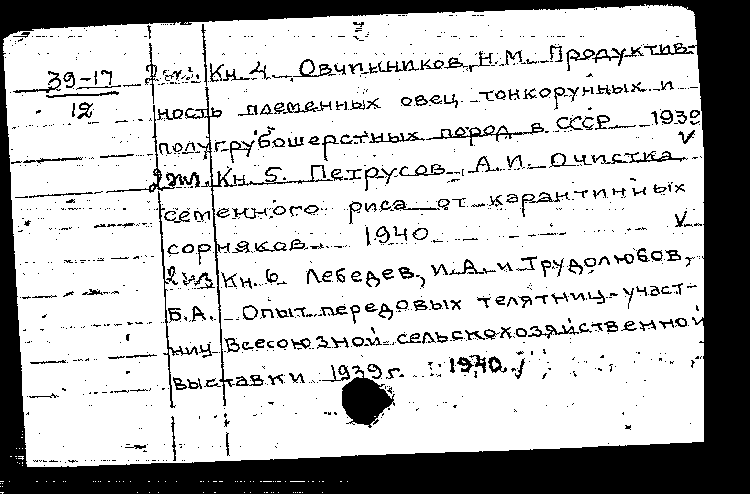 39-17
12
2 экз. Кн. 4. Овчинников, Н.М. Продуктив-
ность племенных овец тонкорунных и
полугрубошерстных пород в СССР. 1939
V
2 экз. Кн. 5. Петрусов, А.И. Очистка
семенного риса от карантинных
сорняков. 1940
V
2 экз Кн. 6 Лебедев, И.А. и Трудолюбов,
Б.А. Опыт передовых телятниц-участ-
ниц Всесоюзной сельскохозяйственной
выставки 1939 г. 1940. V